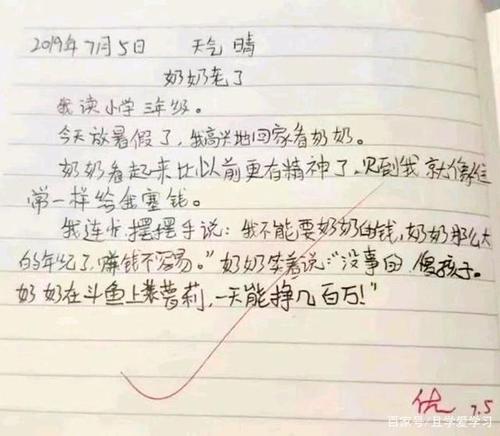 2019年7月5日 天气晴
奶奶老了
我读小学三年级。
今天放暑假了,我高兴地回家看奶奶。
奶奶看起来比以前更有精神了,见到我就像往
常一样给我塞钱。
我连忙摆摆手说:我不能要奶奶的钱,奶奶那么大
的年纪了,赚钱不容易。”奶奶笑着说:“没事的 傻孩子。
奶奶在斗鱼上装萝莉,一天能挣几百万!”
优 7.5
百家号/且学爱学习